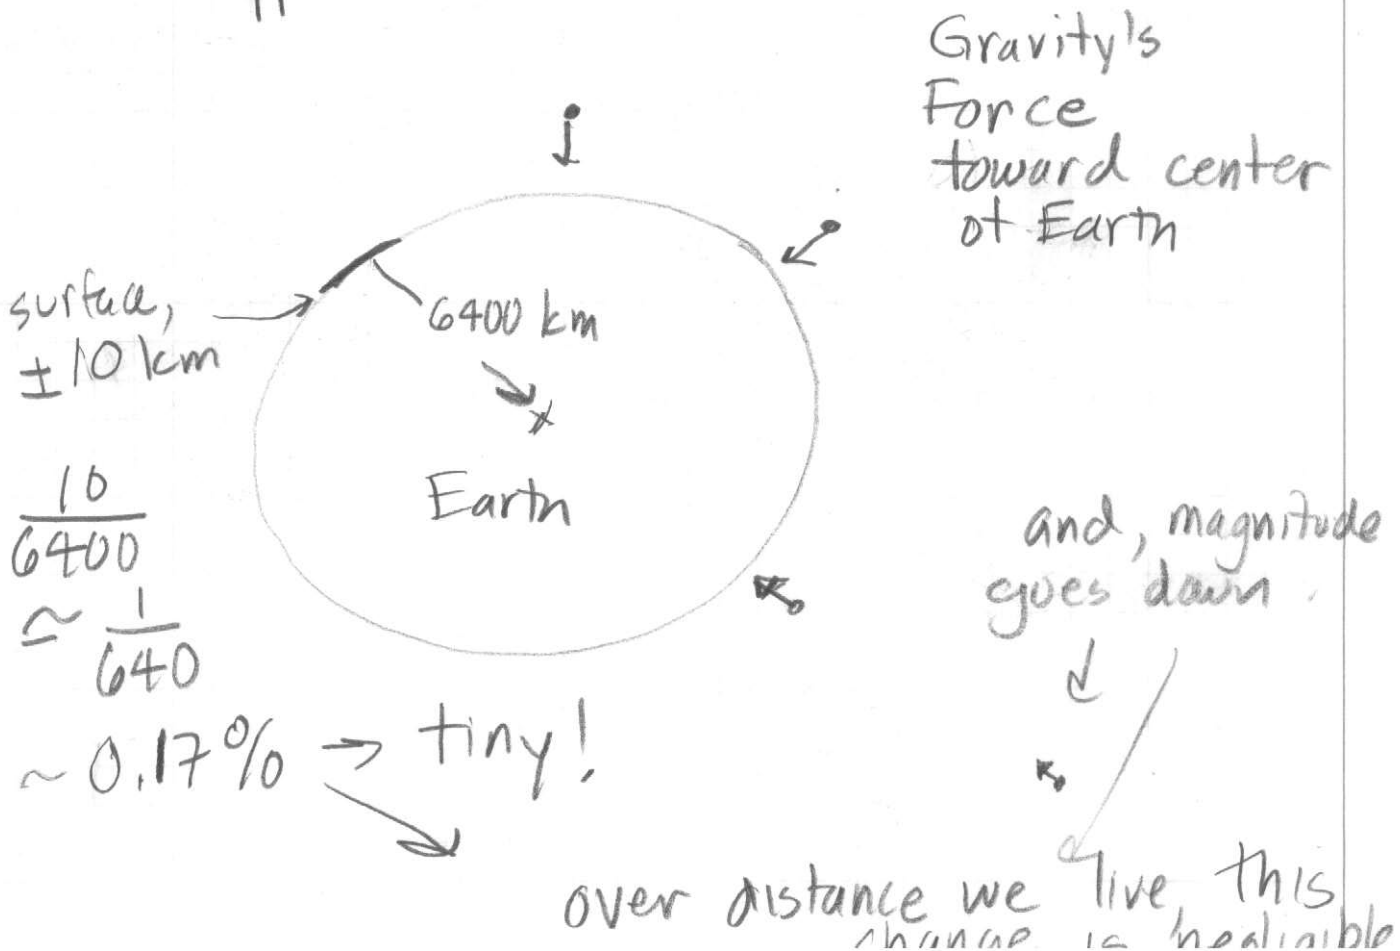 Gravity's
Force
toward center
of Earth
surface,
±10 km
6400 km
Earth
10
6400
≃ 1
640
~ 0.17% → tiny!
and, magnitude
goes down.
over distance we live, this
change is negligible